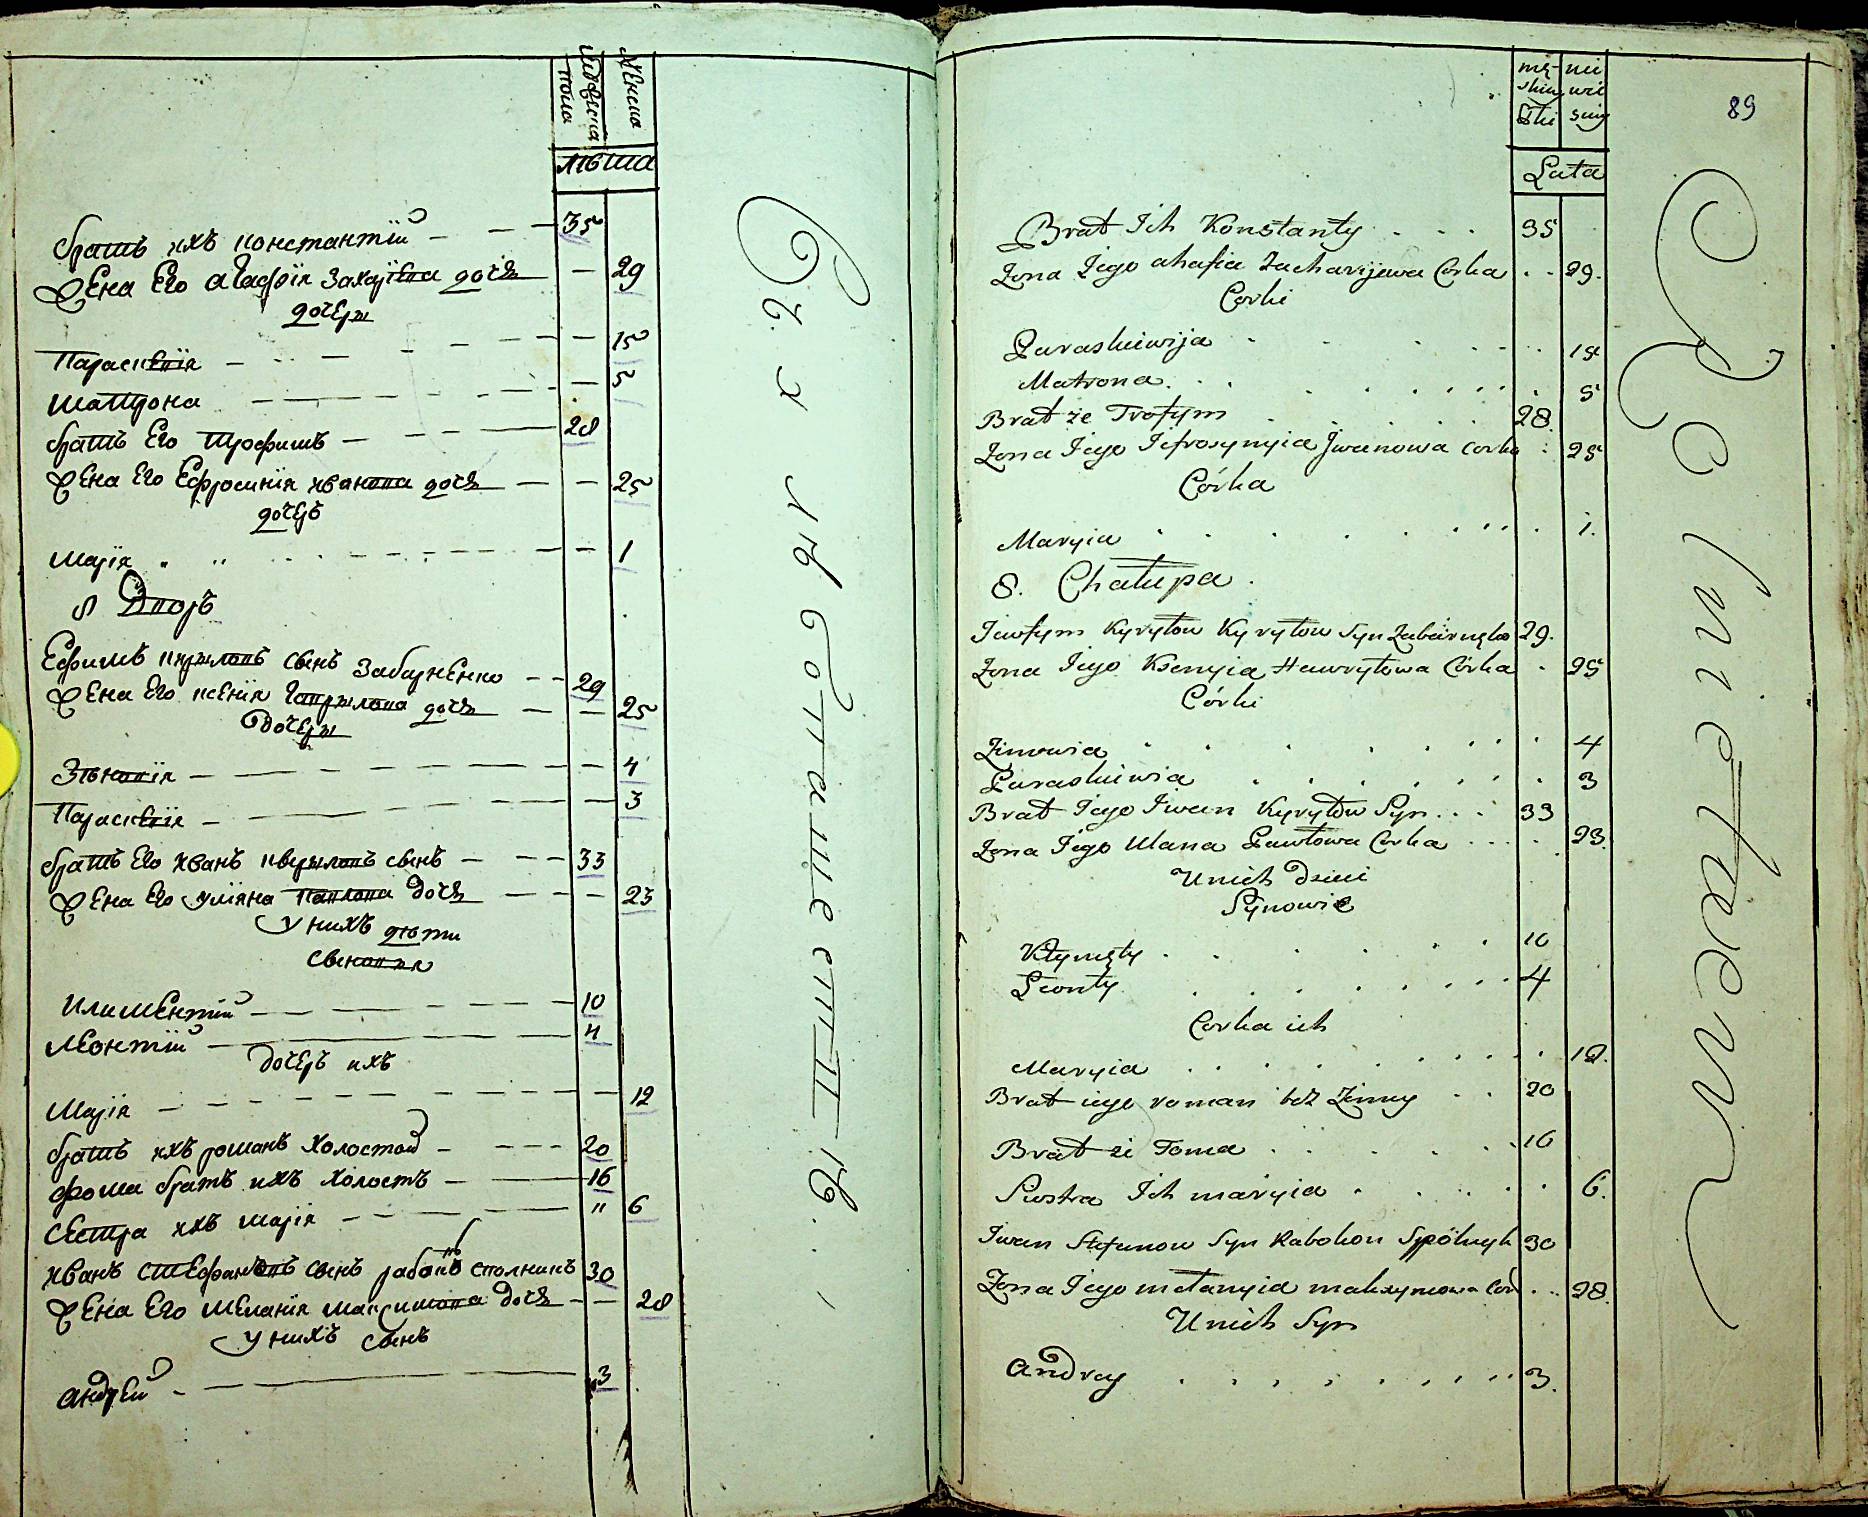 мужеска
пола
женска
лѣта
братъ ихъ константїй 35
Жена Его агафїя Захарїева дочь 29
дочери
Параскевїя 15
матрона 5
братъ Его трофимъ 28
Жена Его Ефросинїя иванова дочь 25
дочерь
марїя 1
8 Дворъ
Ефимъ кириловъ сынъ Забарненко 29
Жена Его ксенїя Гаврилова дочь 25
дочери
Зѣновїя 4
Параскевїя 3
братъ Его иванъ кириловъ сынъ 33
Жена Его улїяна Павлова дочь 23
у нихъ дѣти
сыновья
Климентїй 10
Леонтїй 4
дочерь ихъ
Марїя 12
братъ ихъ романъ холостой 20
фома братъ ихъ холостъ 16
сестра ихъ марїя " 6
иванъ стефановъ сынъ сполникъ 30
Жена Его меланїя максимова дочь 28
у нихъ сынъ
андрей 3
89
męskiy
Płci
niewiesciy
Lata
Brat Ich Konstanty 35
Żona Jego ahafia Zacharyjewa Corka 29.
Corki
Paraskiewija 15
Matrona 5
Brat że Trofym 28
Żona Jego Jefrosynyia Jwanowa corka 25
Córka
Maryia 1.
8. Chałupa
Jewfym Kyryłow Kyryłow Syn Zabarnęko 29.
Żona Jego Ksenyia Hawryłowa Córka 25
Córki
Zinowia 4
Paraskiewia 3
Brat Jego Iwan Kyryłow Syn 33
Żona Jego Ulana Pawłowa Corka 23.
U nich dzieci
Synowie
Kłymęty 10
Leonty 4
Corka ich
Maryia 12.
Brat iego roman bez Żenny 20
Brat że Toma 16
Siostra Ich maryia 6.
Iwan Stefanow Syn Rabokon Spólnyk 30
Żona Jego mełanyia maksymowa Cor 28.
U nich Syn
Andrey 3.